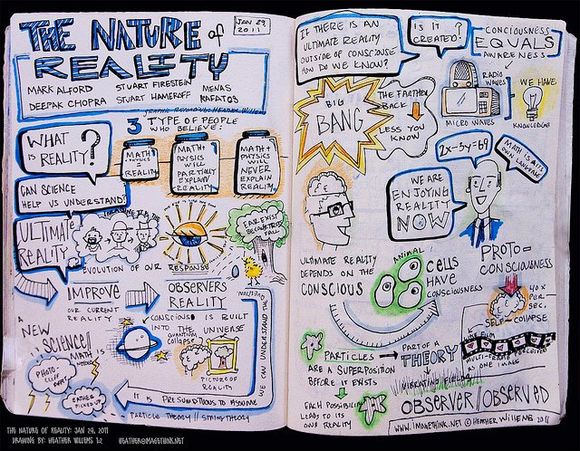 THE NATURE of
REALITY
JAN 29
2011
MARK ALFORD
STUART FIRESTEIN
MENAS
KAFATOS
DEEPAK CHOPRA
STUART HAMEROFF
WHAT
IS REALITY?
3 TYPE OF PEOPLE
WHO BELIEVE:
MATH +
PHYSICS
= REALITY
MATH +
PHYSICS
WILL
PARTIALLY
EXPLAIN
REALITY
MATH +
PHYSICS
WILL
NEVER
EXPLAIN
REALITY
CAN SCIENCE
HELP US UNDERSTAND?
ULTIMATE
REALITY
EVOLUTION OF OUR
RESPONSE
IMPROVE
OUR CURRENT
REALITY
OBSERVERS
REALITY
CONSCIOUS IS BUILT
INTO THE UNIVERSE
QUANTUM
COLLAPSE
PICTURE OF
REALITY
WE CAN UNDERSTAND THE
A
NEW
SCIENCE!!
MATH
PHOTO
IT IS PRESUMPTIOUS TO ASSUME
PARTICLE THEORY // STRING THEORY
IF THERE IS AN
ULTIMATE REALITY
OUTSIDE OF CONSCIOUS
HOW DO WE KNOW?
IS IT
CREATED?
CONCIOUSNESS
EQUALS
AWARENESS
BIG
BANG
THE FARTHER
BACK
LESS YOU
KNOW
RADIO
WAVES
MICRO WAVES
WE HAVE
KNOWLEDGE
2x-5y=69
MATH IS A
WE ARE
ENJOYING
REALITY
NOW
ULTIMATE REALITY
DEPENDS ON THE
CONSCIOUS
ANIMAL
CELLS
HAVE
CONSCIOUSNESS
PROTO-
CONSCIOUSNESS
40 X
PER
SEC.
SELF-COLLAPSE
PARTICLES
ARE A SUPERPOSITION
BEFORE IT EXISTS
PART OF A
THEORY
VIBRATING
AS ONE IMAGE
EACH POSSIBILITY
LEADS TO ITS
OWN REALITY
OBSERVER/OBSERVED
WWW.IMAGETHINK.NET © HEATHER WILLEMS 2011
THE NATURE OF REALITY: JAN 29, 2011
DRAWING BY: HEATHER WILLEMS
HEATHER@IMAGETHINK.NET